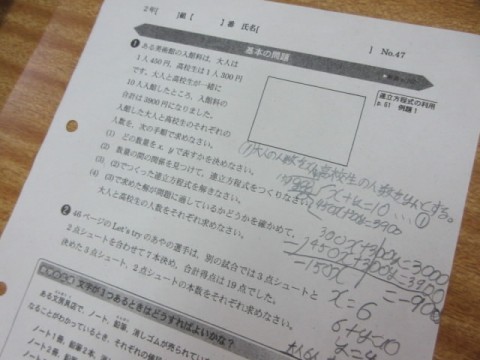 2年[ ]組[ ]番 氏名[ ] No.47
基本の問題
連立方程式の利用
p.51 例題1
1 ある美術館の入館料は、大人は
1人450円、高校生は1人300円
です。大人と高校生が一緒に
10人入館したところ、入館料の
合計は3900円になりました。
入館した大人と高校生のそれぞれの
人数を、次の手順で求めなさい。
(1) どの数量をx、yで表すかを決めなさい。
(2) 数量の間の関係を見つけて、連立方程式をつくりなさい。
(3) (2)でつくった連立方程式を解きなさい。
(4) (3)で求めた解が問題に適しているかどうかを確かめて、
大人と高校生の人数をそれぞれ求めなさい。
(1)大人の人数をx、高校生の人数をyとする。
x+y=10 … ①
450x+300y=3900
300x+300y=3000
-)450x+300y=3900
-150x =-900
x=6
6+y=10
2 46ページのLet's tryのあやの選手は、別の試合では3点シュートと
2点シュートを合わせて7本決め、合計得点は19点でした。
決めた3点シュート、2点シュートの本数をそれぞれ求めなさい。
文字が3つあるときはどうすればよいかな?
ある文房具店で、ノート、鉛筆、消しゴムが売られてい
なることがわかっているとき、それぞれの値段
ノート1冊、鉛筆2本、消し